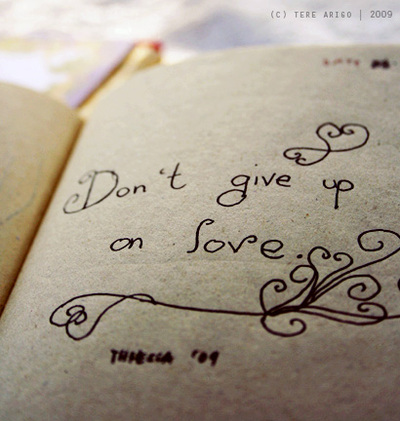 (C) TERE ARIGO | 2009
Don't give up
on love.
'09